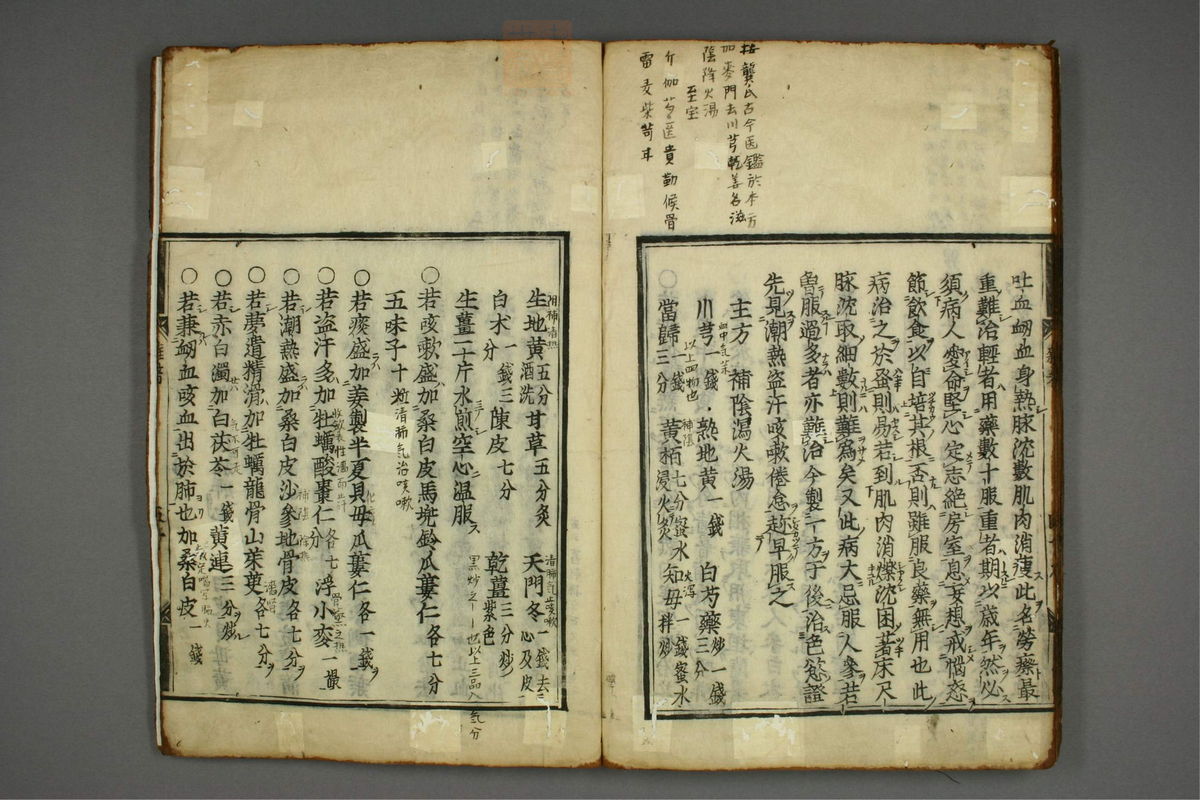 按龔氏古今医鑑於本方
加麥門去川芎乾姜名滋
陰降火湯
至宝
吐血衂血身熱脉沈數肌肉消瘦此名勞瘵最
重難治輕者用藥數十服重者期以歳年然必
須病人愛命堅心定志絶房室息妄想戒惱怒
節飲食以自培其根否則雖服良藥無用也此
病治之於蚤則易若到肌肉消爍沈困著床尺
脉沈取細數則難為矣又此病大忌服人參若
曽服過多者亦難治今製一方于後治色慾證
先見潮熱盗汗咳嗽倦怠趂早服之
主方 補陰瀉火湯
川芎一錢 熟地黄一錢 白芍藥炒一錢三分
血中気薬
以上四物也
○當歸一錢三分 黄栢七分蜜水浸火炙 知母一錢蜜水拌炒
補陰
火瀉
生地黄五分酒洗 甘草五分炙 天門冬一錢去心及皮
清肺気止咳嗽
白朮一錢一分 陳皮七分 乾薑三分炒紫色
生薑一十片水煎空心温服
黒炒之 也以上三品入気分
○若咳嗽盛加桑白皮馬兠鈴瓜蔞仁各七分
五味子十粒
清肺気治咳嗽
○若痰盛加姜製半夏貝母瓜蔞仁各一錢
○若盗汗多加牡蠣酸棗仁各七分浮小麥一撮
○若潮熱盛加桑白皮沙參地骨皮各七分
○若夢遺精滑加牡蠣龍骨山茱萸各七分
○若赤白濁加白茯苓一錢黄連三分炒
○若兼衂血咳血出於肺也加桑白皮一錢